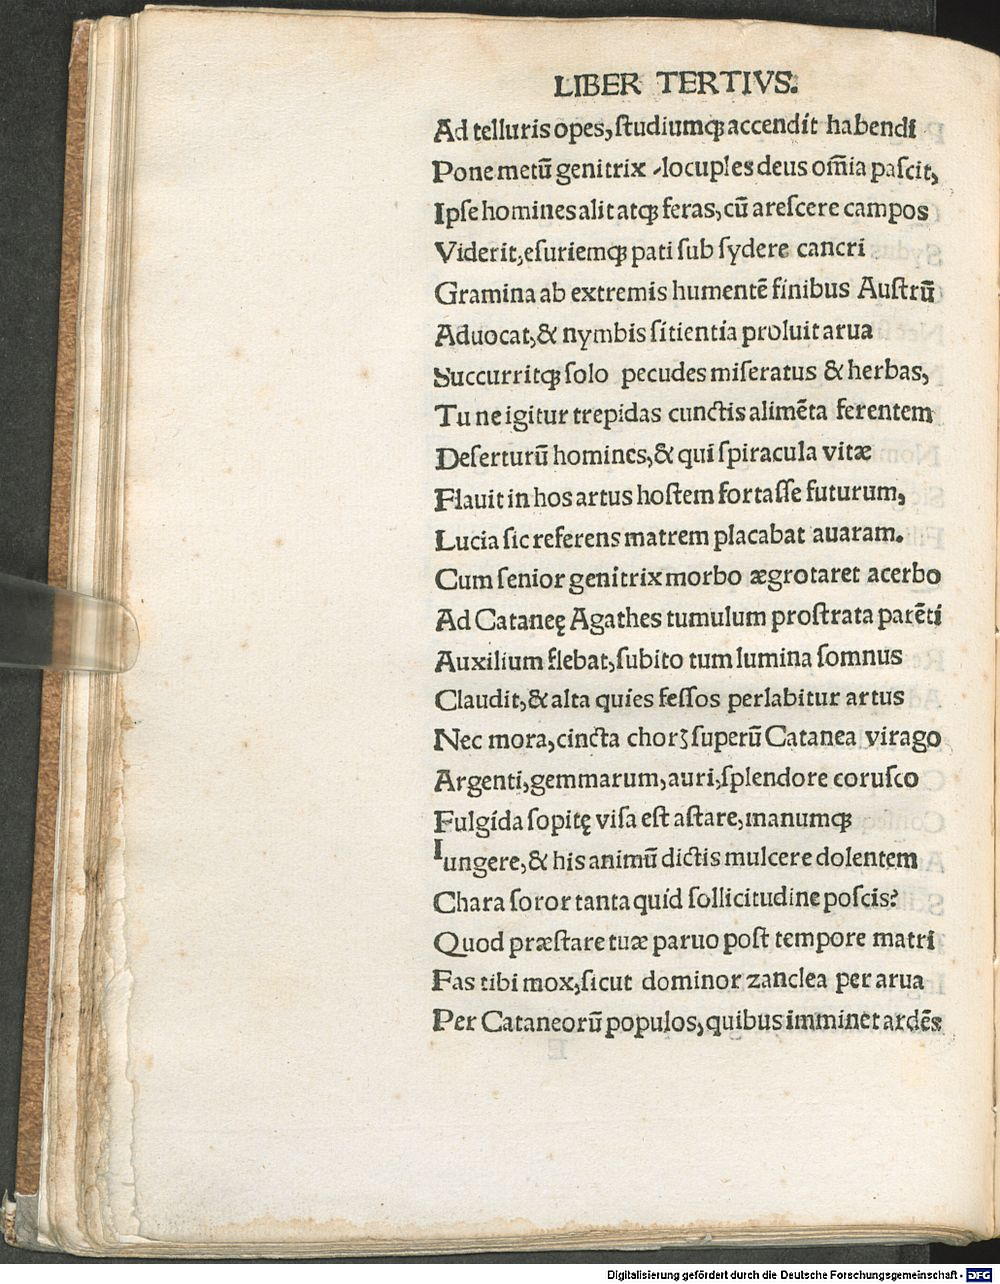 LIBER TERTIVS.
Ad telluris opes, ſtudiumqꝫ accendit habendi
Pone metū genitrix -locuples deus om̄ia paſcit,
Ipſe homines alit atqꝫ feras, cū areſcere campos
Viderit, eſuriemqꝫ pati ſub ſydere cancri
Gramina ab extremis humentē finibus Auſtrū
Aduocat, & nymbis ſitientia proluit arua
Succurritqꝫ ſolo pecudes miſeratus & herbas,
Tu ne igitur trepidas cunctis alimēta ferentem
Deſerturū homines, & qui ſpiracula vitæ
Flauit in hos artus hoſtem fortaſſe futurum,
Lucia ſic referens matrem placabat auaram.
Cum ſenior genitrix morbo ægrotaret acerbo
Ad Cataneę Agathes tumulum proſtrata parēti
Auxilium flebat, ſubito tum lumina ſomnus
Claudit, & alta quies feſſos perlabitur artus
Nec mora, cincta chorꝫ ſuperū Catanea virago
Argenti, gemmarum, auri, ſplendore coruſco
Fulgida ſopitę viſa eſt aſtare, manumqꝫ
Iungere, & his animū dictis mulcere dolentem
Chara ſoror tanta quid ſollicitudine poſcis?
Quod præſtare tuæ paruo poſt tempore matri
Fas tibi mox, ſicut dominor zanclea per arua
Per Cataneorū populos, quibus imminet ardēs
Digitalisierung gefördert durch die Deutsche Forschungsgemeinschaft - DFG